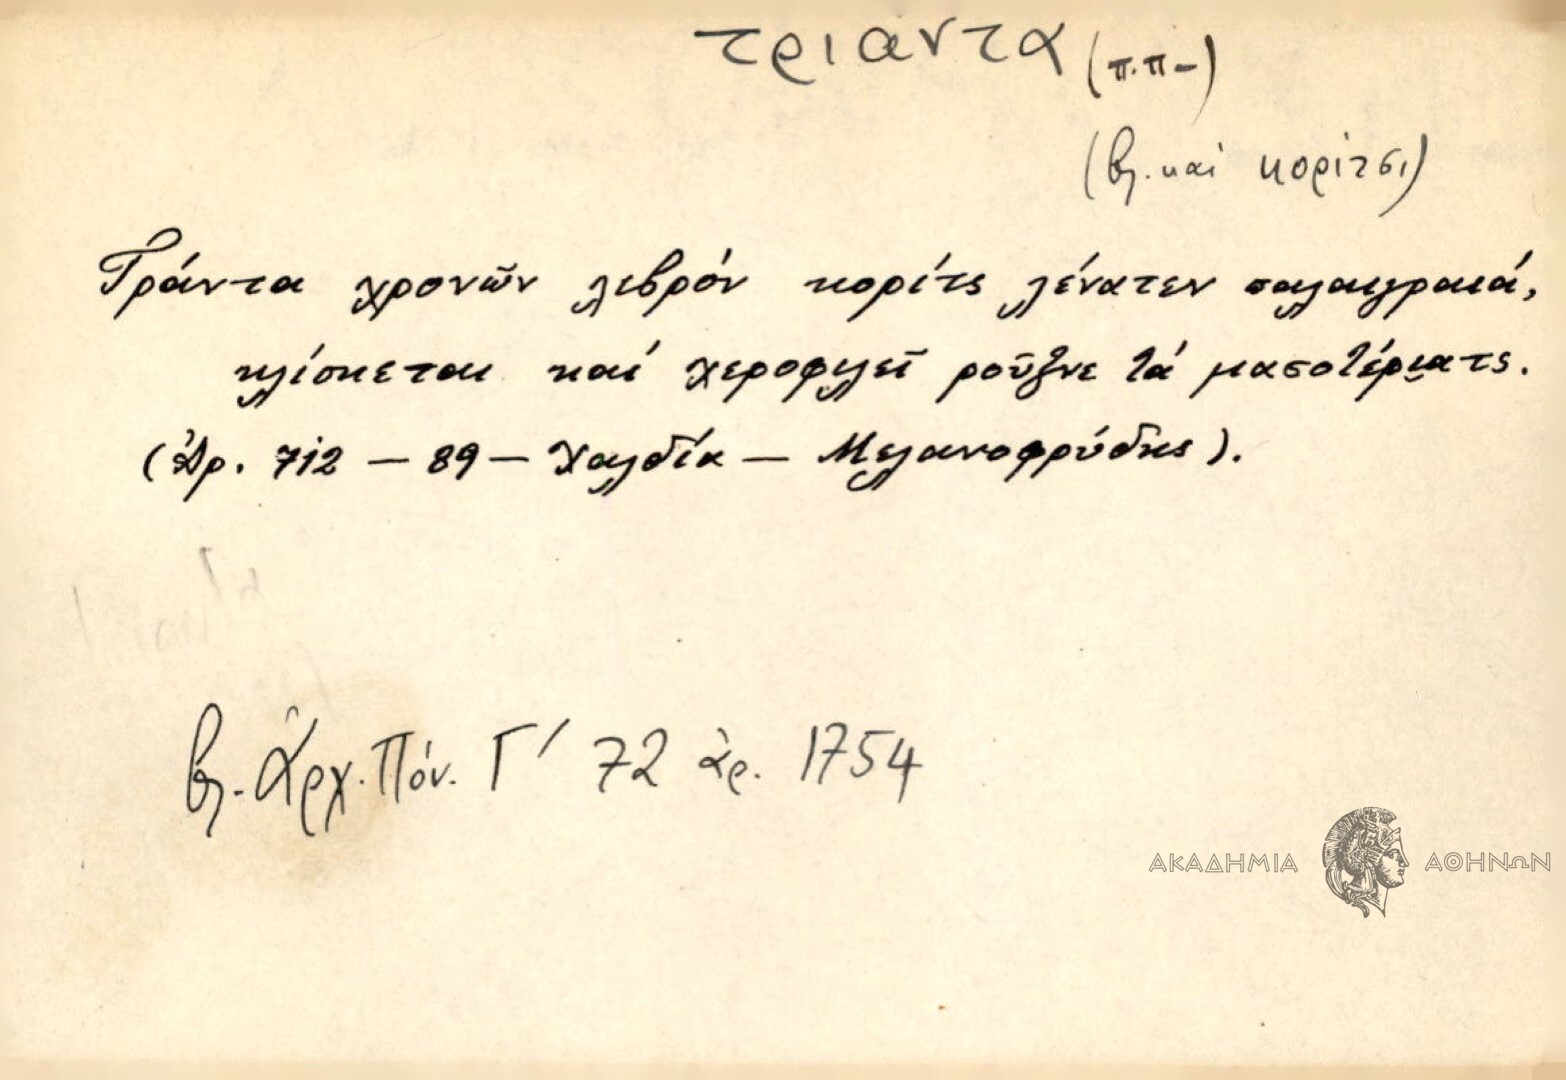 τριαντα (π.π-)
(βλ. καὶ κορίτσι)
Τράντα χρονῶν λεβρόν κορίτς λένατεν παλαιγραιά,
κλίσκεται καί χεροφιλεῖ ροῦζνε τά μασοτέριατς.
(Ἀρ. 712 – 89 – Χαλδία – Μελανοφρύδης).
βλ. Ἀρχ. Πόν. Γ΄ 72 ἀρ. 1754
ΑΚΑΔΗΜΙΑ ΑΘΗΝΩΝ